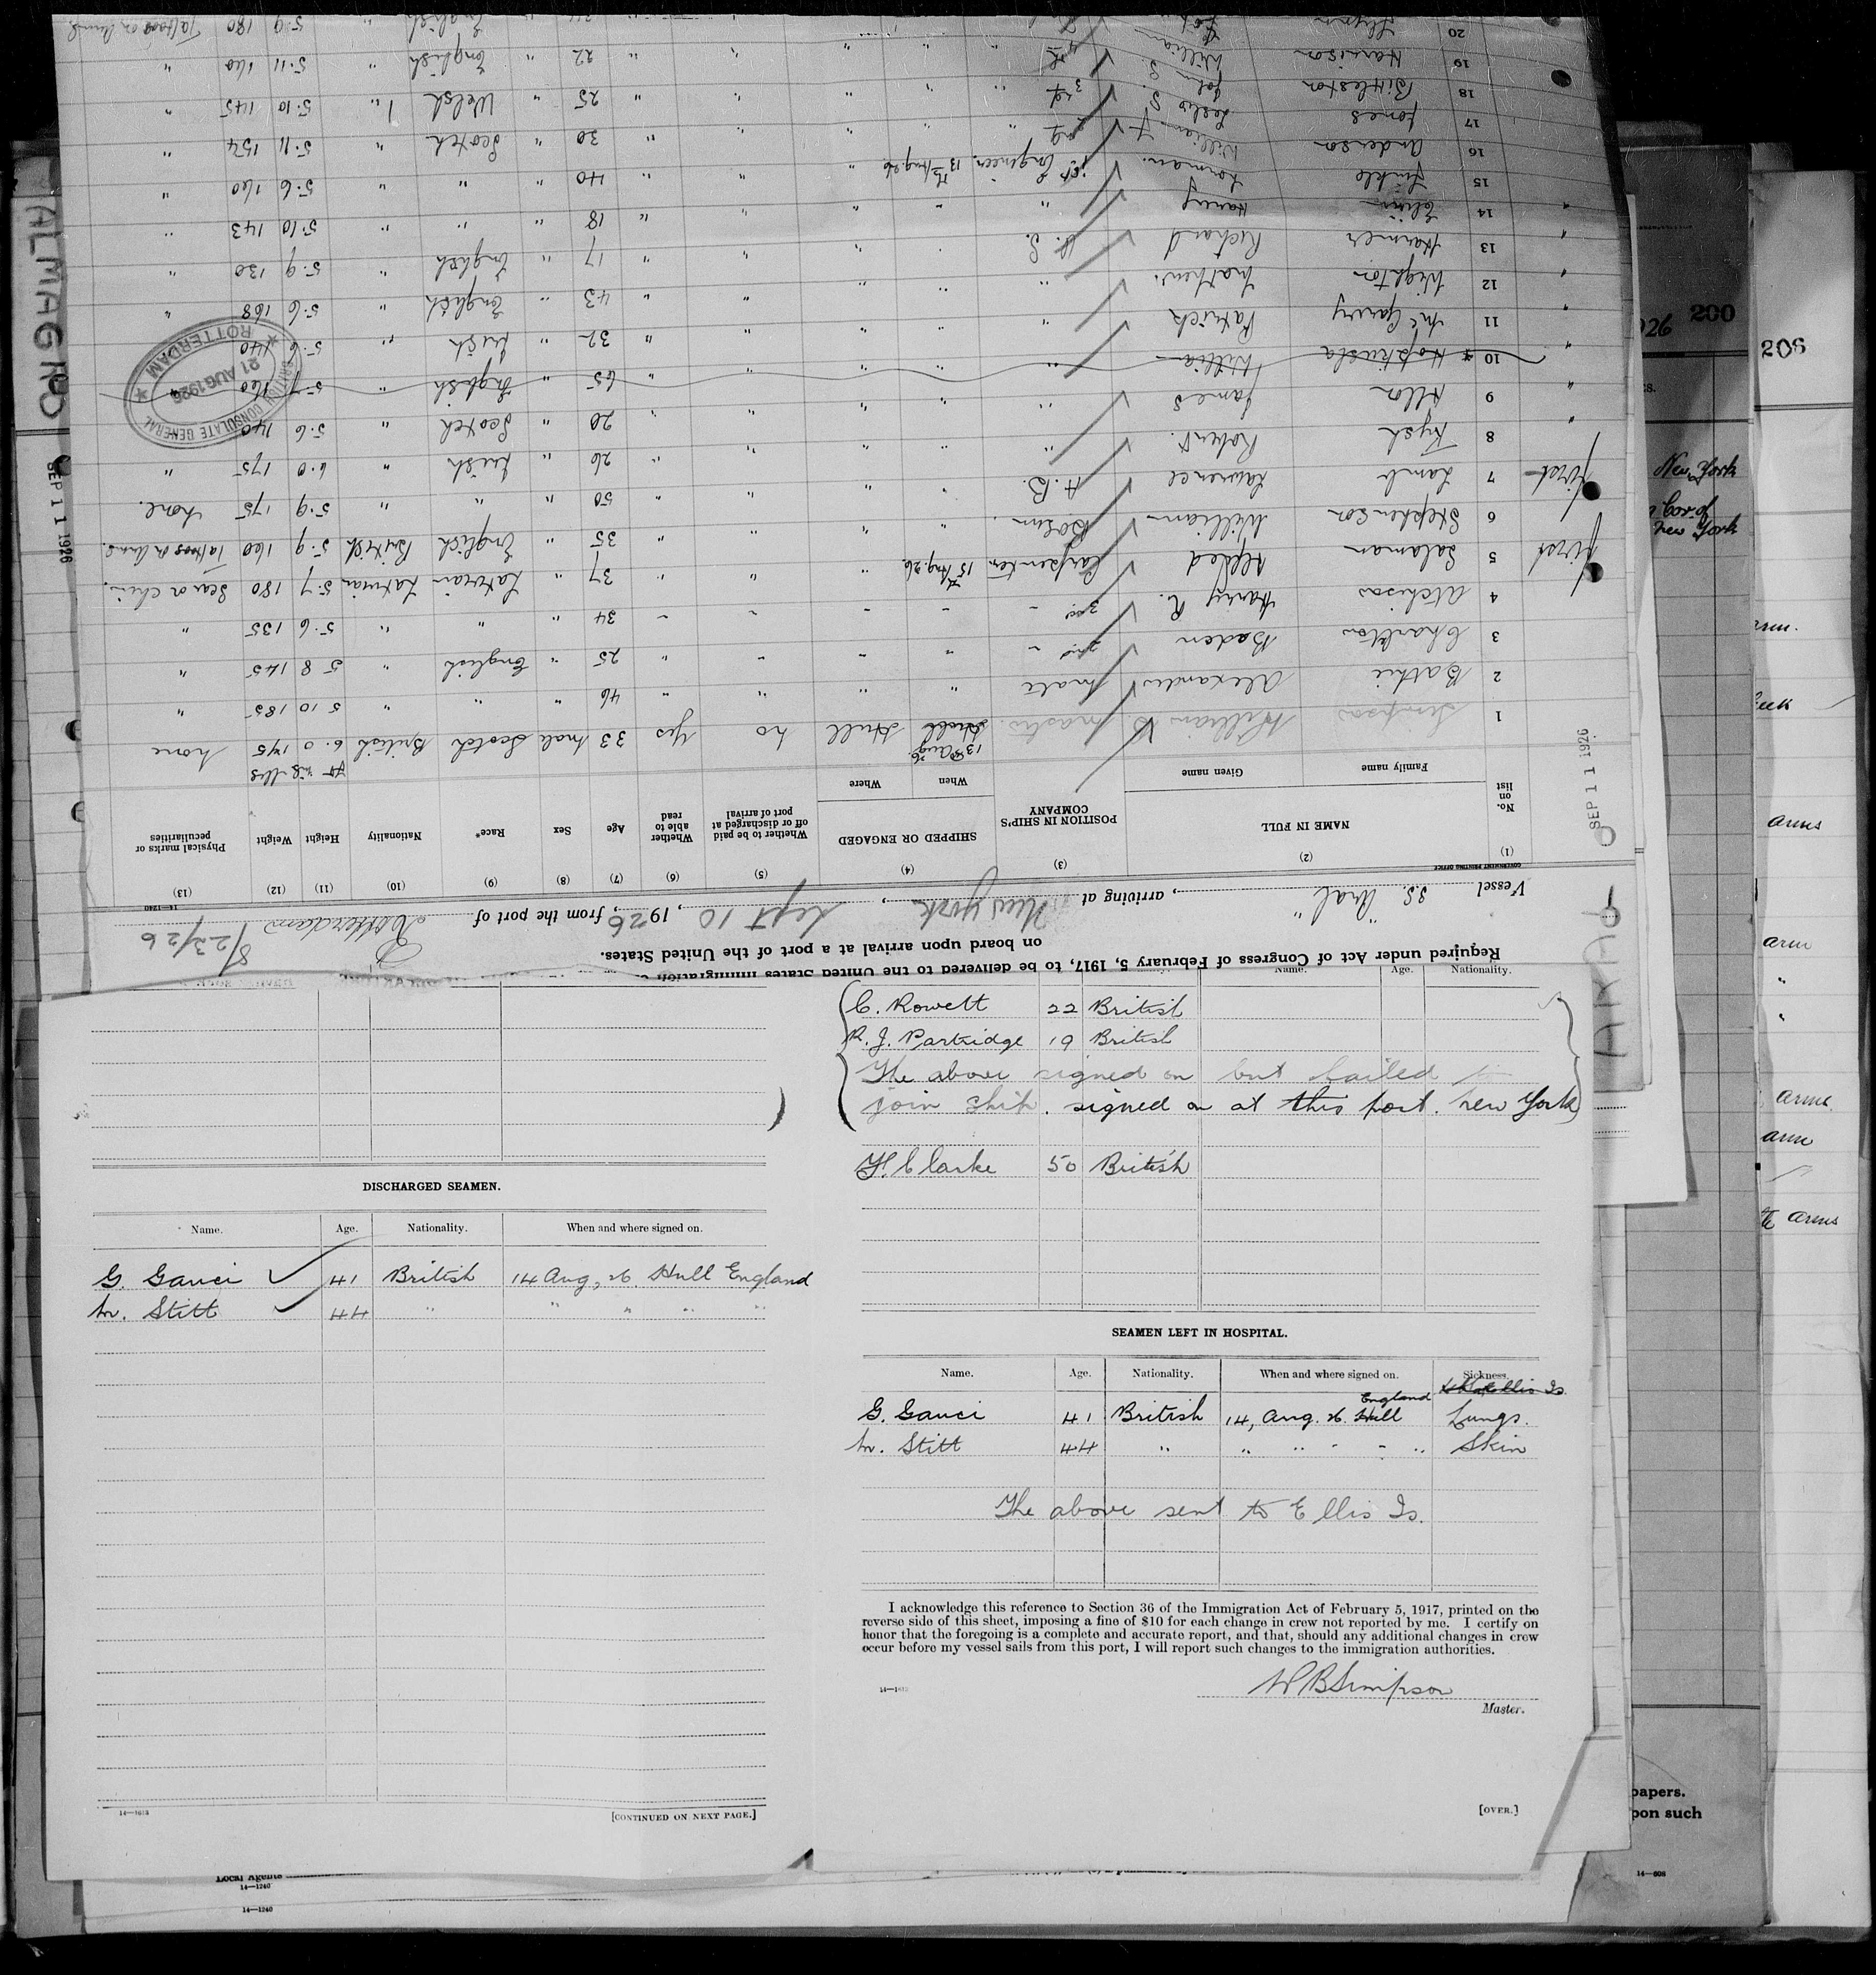 Required under Act of Congress of February 5, 1917, to be delivered to the United States
on board upon arrival at a port of the United States.
Vessel S.S. "Aral", arriving at New York, Sept 10, 1926, from the port of Rotterdam 8/23/26
14—1240
GOVERNMENT PRINTING OFFICE
(1) (2) (3) (4) (5) (6) (7) (8) (9) (10) (11) (12) (13)
No. on list NAME IN FULL POSITION IN SHIP'S COMPANY SHIPPED OR ENGAGED Whether to be paid off or discharged at port of arrival Whether able to read Age Sex Race* Nationality Height Weight Physical marks or peculiarities
Family name Given name When Where
1 Simpson William B. Master 13th Aug 26 Hull no yes 33 male Scotch British 6.0 175 none
2 Bathie Alexander Mate " " " " 46 " " " 5 10 185 "
3 Charlton Baden 2nd " " " " 25 " English " 5 8 145 "
4 Atchison Harry R. 3rd " " " " 34 " " " 5.6 135 "
5 Salaman Alfred Carpenter 15th Aug. 26 " " " 37 " Latvian Latvian 5.7 180 Scar on Chin
6 Stephenson William Bosun " " " " 35 " English British 5.9 160 Tattoos on arms.
First 7 Lamb Lawrence A.B. " " " " 50 " " " 5.9 175 none.
8 Kysh Robert " " " " 26 " Irish " 6.0 175 "
9 Allan James " " " " 20 " Scotch " 5.6 140
10 William " " " " 65 " English " 5.7 160 "
11 McGarry Patrick " " " " 32 " Irish " 5.6 140
12 Wighton Mathew. " " " " 43 " English " 5.6 168 "
13 Harmer Richard O.S. " " " 17 " English " 5.9 130 "
14 Harry " " " " 18 " " " 5.10 143 "
15 Norman 1st Engineer. 13th Aug. 26 " " " 40 " " " 5.6 160 "
16 Anderson William 2nd " " " " 30 " Scotch " 5.11 154 "
17 Jones Leslie S. 3rd " " " " 25 " Welsh " 5.10 145 "
18 Bittleston John S. 4th " " " " 22 " English " 5.11 160 "
19 Harrison William
20 English " 5.9 180 Tattoos on arms.
First
BRITISH CONSULATE GENERAL
21 AUG 1926
ROTTERDAM
SEP 11 1926
ARAL
Name. Age. Nationality.
C. Rowett 22 British
R. J. Partridge 19 British
The above signed on but failed to
join ship. signed on at this port. New York
H. Clarke 50 British
DISCHARGED SEAMEN.
Name. Age. Nationality. When and where signed on.
G. Gauci 41 British 14 Aug, 26 Hull England
W. Stitt 44 " " " " "
14—1613
[CONTINUED ON NEXT PAGE.]
SEAMEN LEFT IN HOSPITAL.
Name. Age. Nationality. When and where signed on. Sickness.
G. Gauci 41 British 14, Aug. 26 Hull England Lungs.
W. Stitt 44 " " " " " " Skin
The above sent to Ellis Is.
I acknowledge this reference to Section 36 of the Immigration Act of February 5, 1917, printed on the
reverse side of this sheet, imposing a fine of $10 for each change in crew not reported by me. I certify on
honor that the foregoing is a complete and accurate report, and that, should any additional changes in crew
occur before my vessel sails from this port, I will report such changes to the immigration authorities.
14—1613
W B Simpson
Master.
[OVER.]
Local Agents
14—1240
14—1240
ALMAGRO
SEP 11 1926
926 200
New York
Cor. of
New York
206
arms
arm
arms.
arm
arms
papers.
pon such
14—608